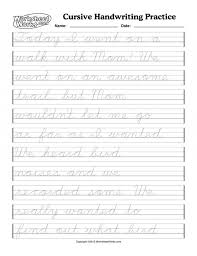 Worksheet Works.com Cursive Handwriting Practice
Name: Date:
Today I went on a
walk with Mom! We
went on an awesome
trail but Mom
wouldn't let me go
as far as I wanted
We heard bird
noises and we
recorded some We
really wanted to
find out what bird